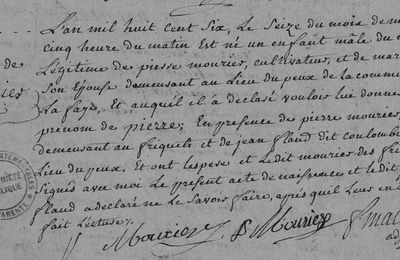 L'an mil huit cent six, Le Seize du mois de m
cinq heure du matin Est né un enfant mâle du m
de Légitime de pierre mouriés, cultivateur, et de mar
Son Epouse demeurant au Lieu du peux de la commu
La faye, Et auquel il a déclaré vouloir lui donne
prénom de pierre; En presence de pierre mouriés,
demeurant au friquets et de jean flaud dit coulomb
Lieu du peux, Et ont lespere et Ledit mouries des fri
signés avec moi Le present acte de naissence et ledit
flaud a declaré ne Le Savoir faire, après quil Leur en
fait Lecture.
Mourier P Mourier